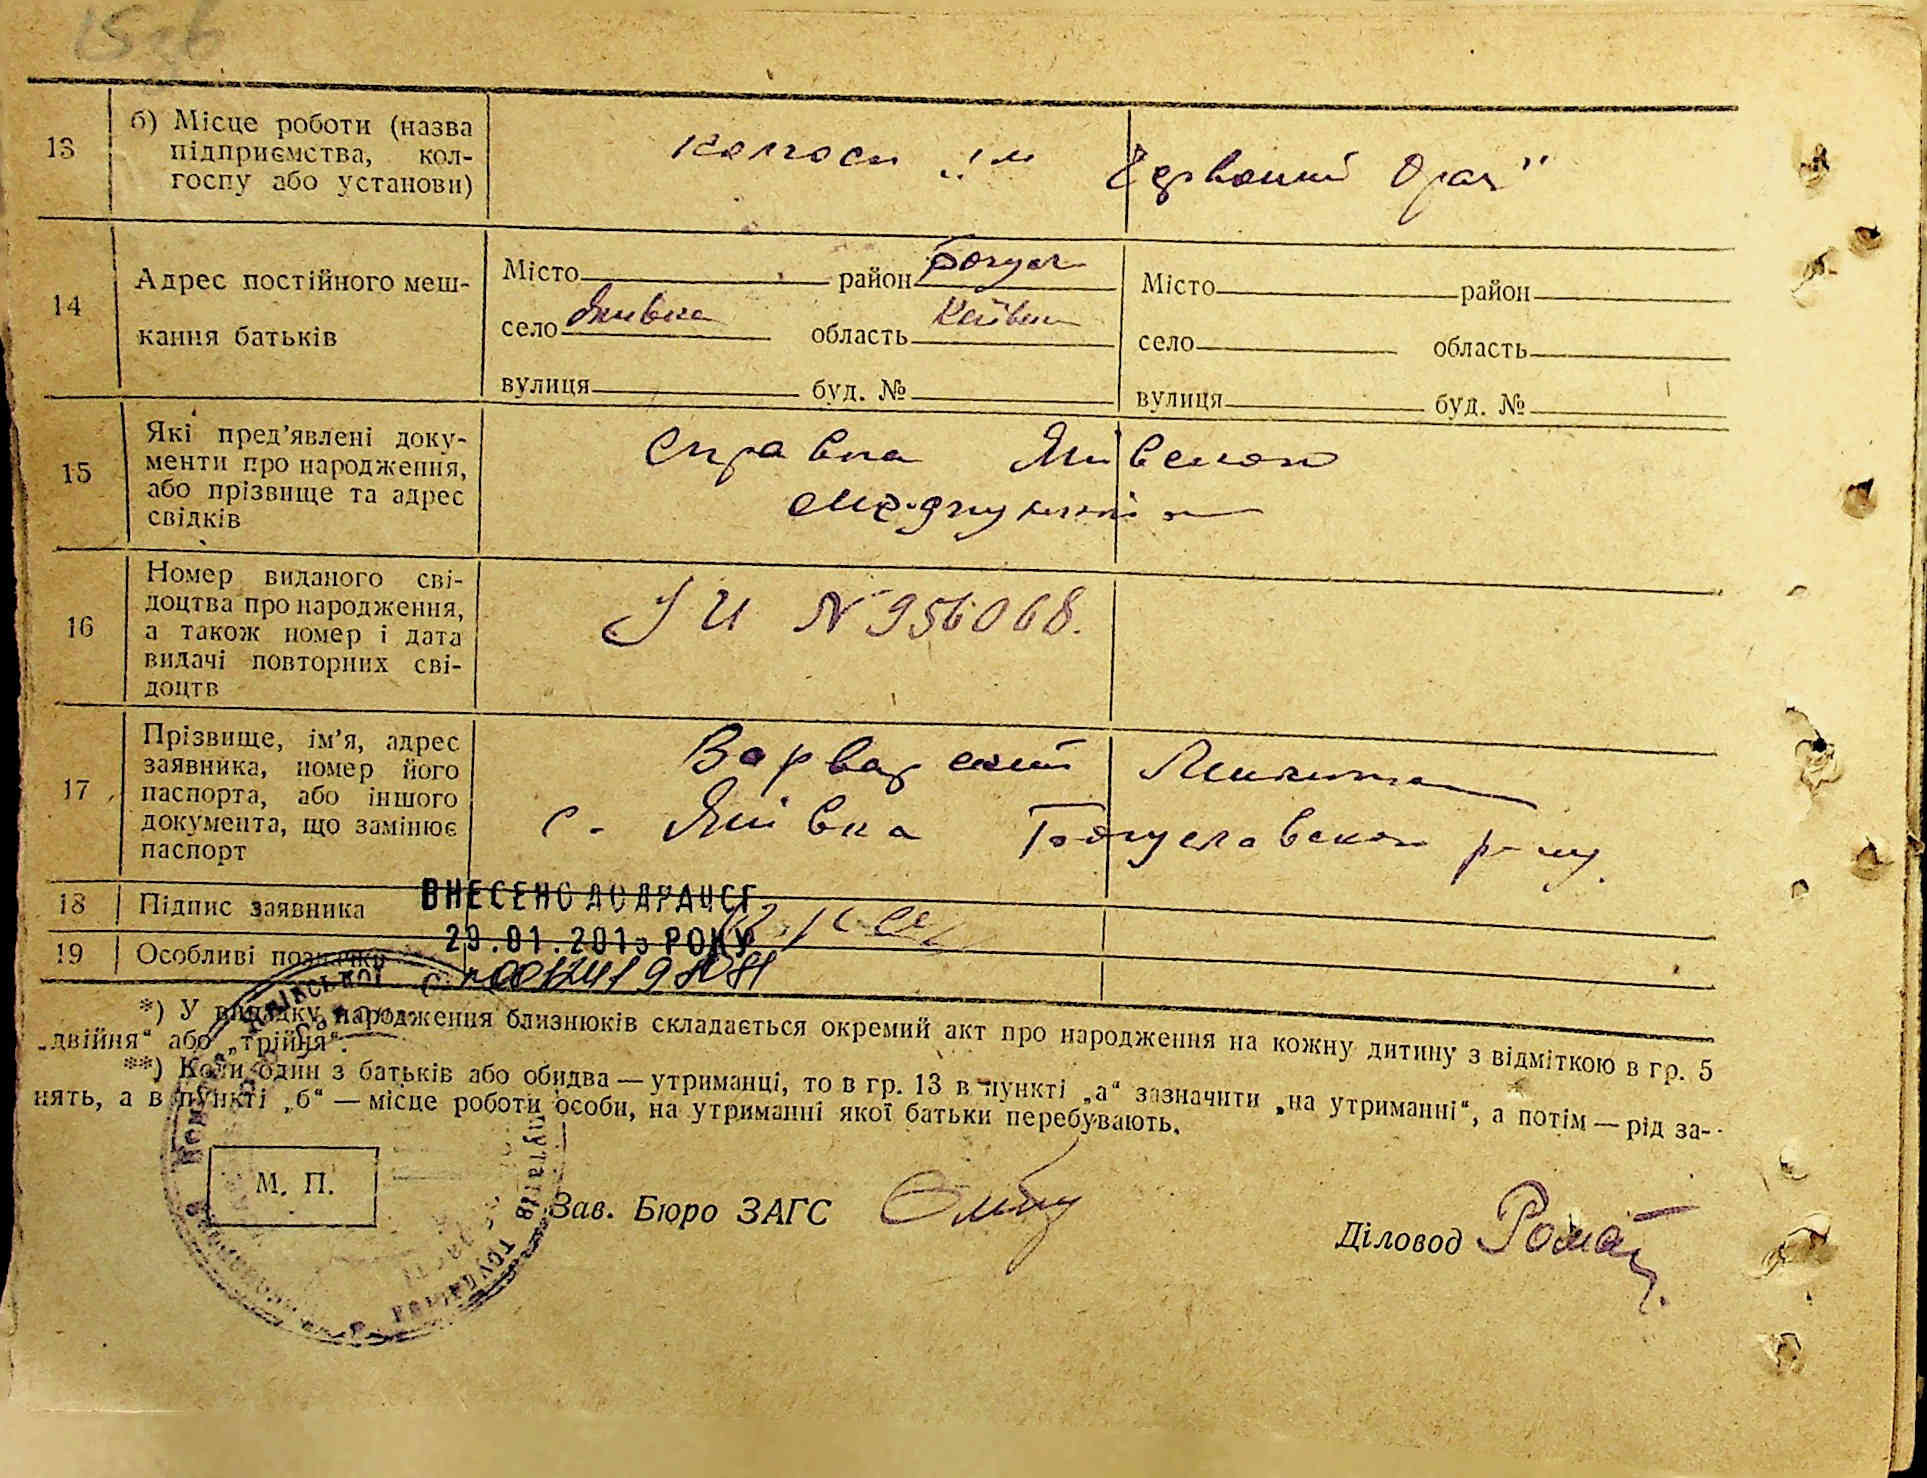 13
б) Місце роботи (назва
підприємства, кол-
госпу або установи)
колгосп ім "Червоний Орач"
14
Адрес постійного меш-
кання батьків
Місто район Богусл
село Яхнівка область Київськ
вулиця буд. №
Місто район
село область
вулиця буд. №
15
Які пред'явлені доку-
менти про народження,
або прізвище та адрес
свідків
справка
медпункту
16
Номер виданого сві-
доцтва про народження,
а також номер і дата
видачі повторних сві-
доцтв
N 956068.
17
Прізвище, ім'я, адрес
заявника, номер його
паспорта, або іншого
документа, що замінює
паспорт
Варварский Микита
с. Богуславского р-ну.
18 Підпис заявника
ВНЕСЕНО ДО ДРАЦСГ
29.01.2015 РОКУ
19 Особливі позначки
*) У випадку народження близнюків складається окремий акт про народження на кожну дитину з відміткою в гр. 5
„двійня“ або „трійня“.
**) Коли один з батьків або обидва — утриманці, то в гр. 13 в пункті „а“ зазначити „на утриманні“, а потім — рід за-
нять, а в пункті „б“ — місце роботи особи, на утриманні якої батьки перебувають.
М. П.
Зав. Бюро ЗАГС
Діловод